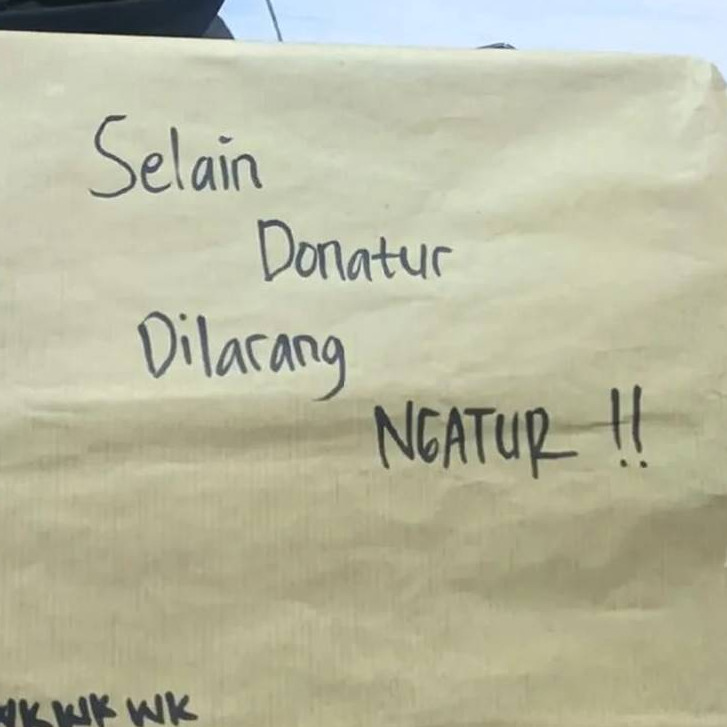 Selain
Donatur
Dilarang
NGATUR !!
WK WK WK